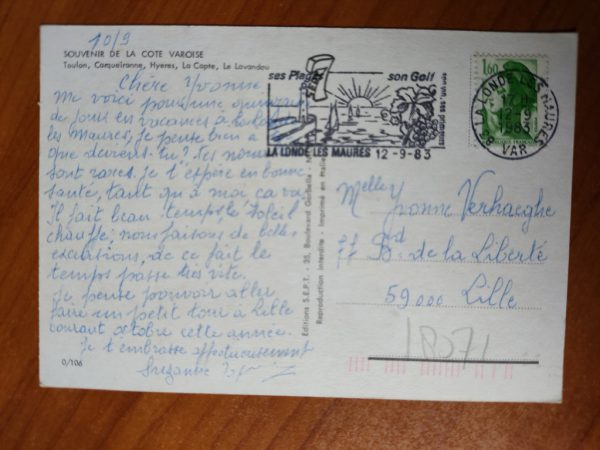 10/9
SOUVENIR DE LA COTE VAROISE
Toulon, Carqueiranne, Hyeres, La Capte, Le Lavandou
Chère Yvonne
Me voici pour une quinzaine
de jours en vacances à la Londe
les Maures, je pense bien à toi
que deviens-tu? Tes nouvelles
sont rares. Je t'espère en bonne
santé, tant qu'à moi, ça va.
Il fait beau temps, le soleil
chauffe, nous faisons de belles
excursions, de ce fait le
temps passe très vite.
Je pense pouvoir aller
faire un petit tour à Lille
courant octobre cette année.
Je t'embrasse affectueusement
Suzanne
0/106
Editions S.E.P.T. - 35, Boulevard
Reproduction interdite - Imprimé en Italie
ses Plages
son Golf
ses vins
LA LONDE LES MAURES 12-9-83
1,60
83 LA LONDE LES MAURES
17H
12-9
1983
VAR
Melle Yvonne Verhaeghe
77 Bd de la Liberté
59000 Lille
18071